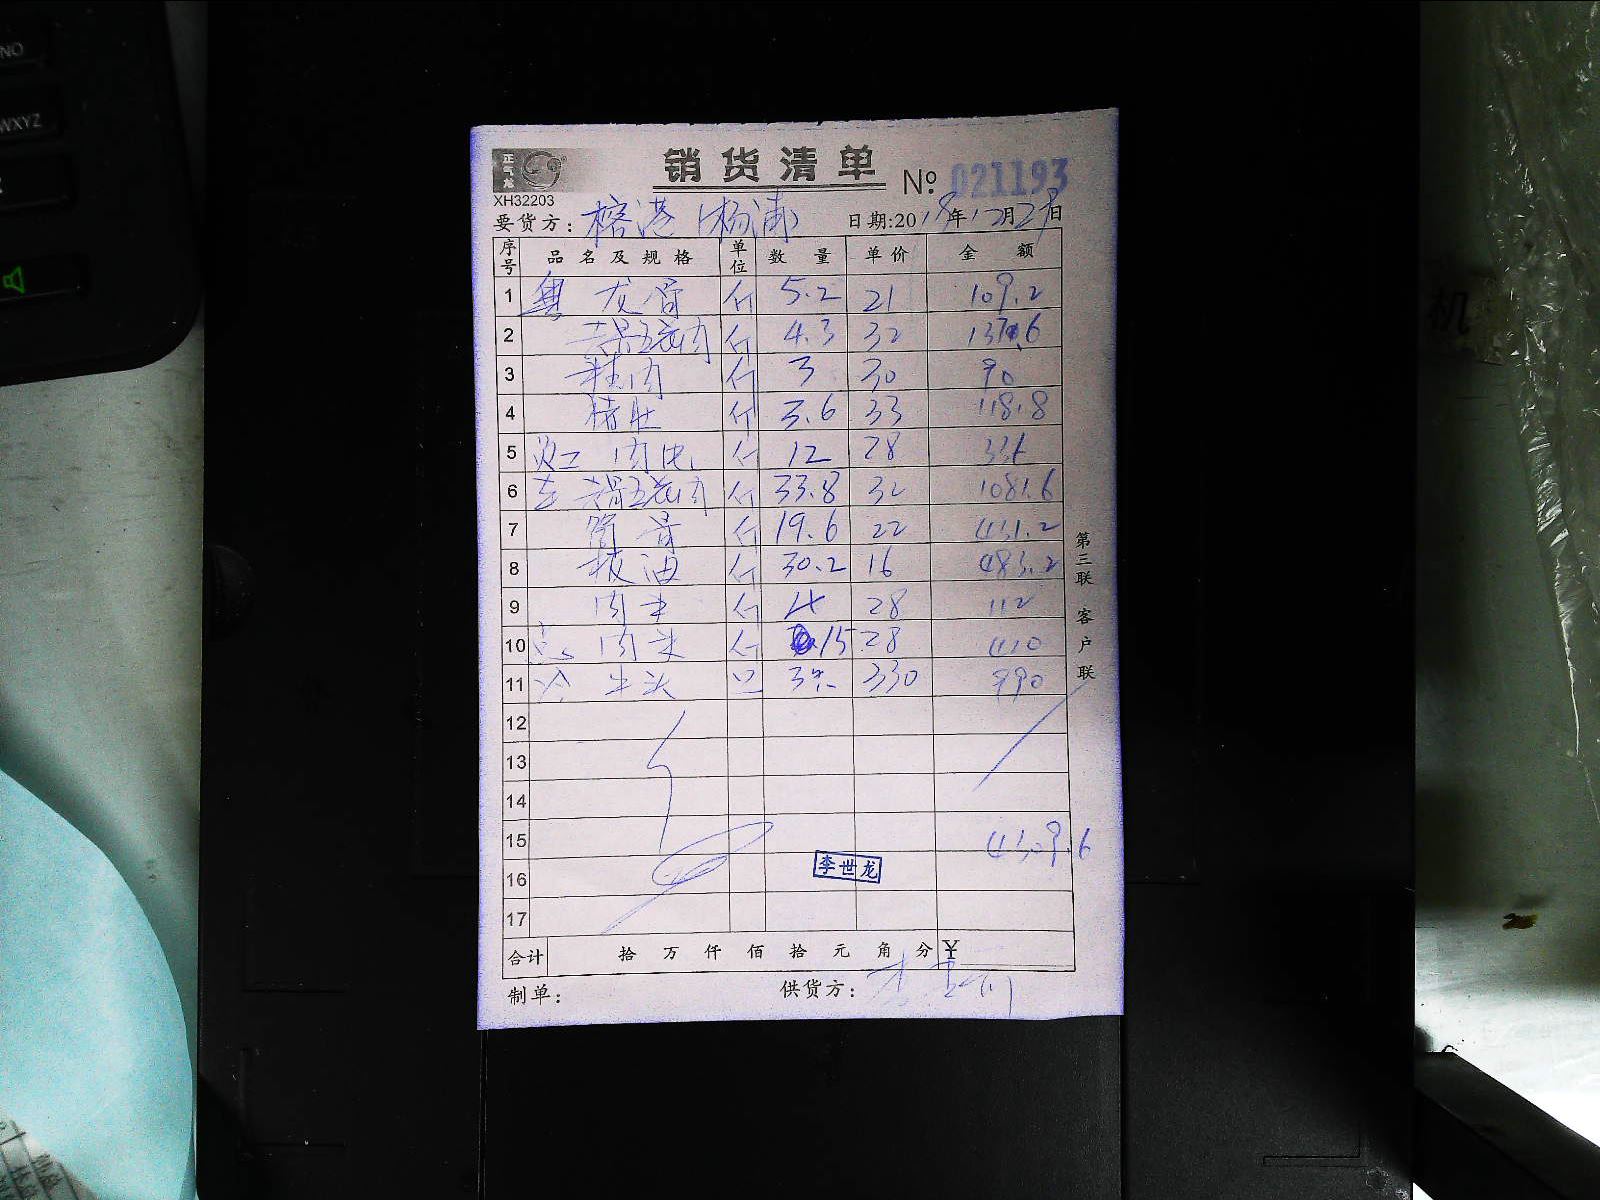 NO
WXYZ
机
正气龙
XH32203
销货清单
№ 021193
要货方: 榕港(杨浦) 日期:2018年12月29日
序号 品名及规格 单位 数量 单价 金额
1 粤 龙骨 斤 5.2 21 109.2
2 去骨五花肉 斤 4.3 32 137.6
3 精肉 斤 3 30 90
4 猪肚 斤 3.6 33 118.8
5 烧 肉 斤 12 28 336
6 去骨五花肉 斤 33.8 32 1081.6
7 筒骨 斤 19.6 22 431.2
8 板油 斤 30.2 16 483.2
9 肉末 斤 4 28 112
10 点 肉末 斤 15 28 420
11 冷 牛头 只 3 330 990
12
13
14
15 4309.6
16 李世龙
17
合计 拾 万 仟 佰 拾 元 角 分 ¥
制单: 供货方:
第三联 客户联